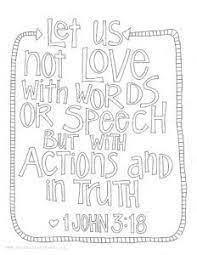 Let us
not Love
with Words
OR Speech
But with
Actions and
in TRuth
♡ 1 JOHN 3:18